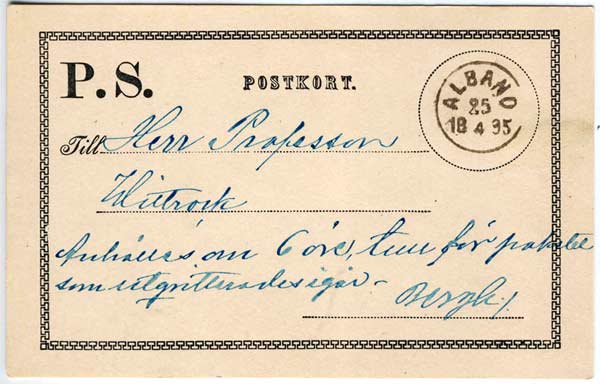 P.S.
POSTKORT.
ALBANO
25
18 4 95
Till Herr Professorn
Wittrock
Anhålles om 6 öre, för paketet
som utqvitterades igår -
Bergh.